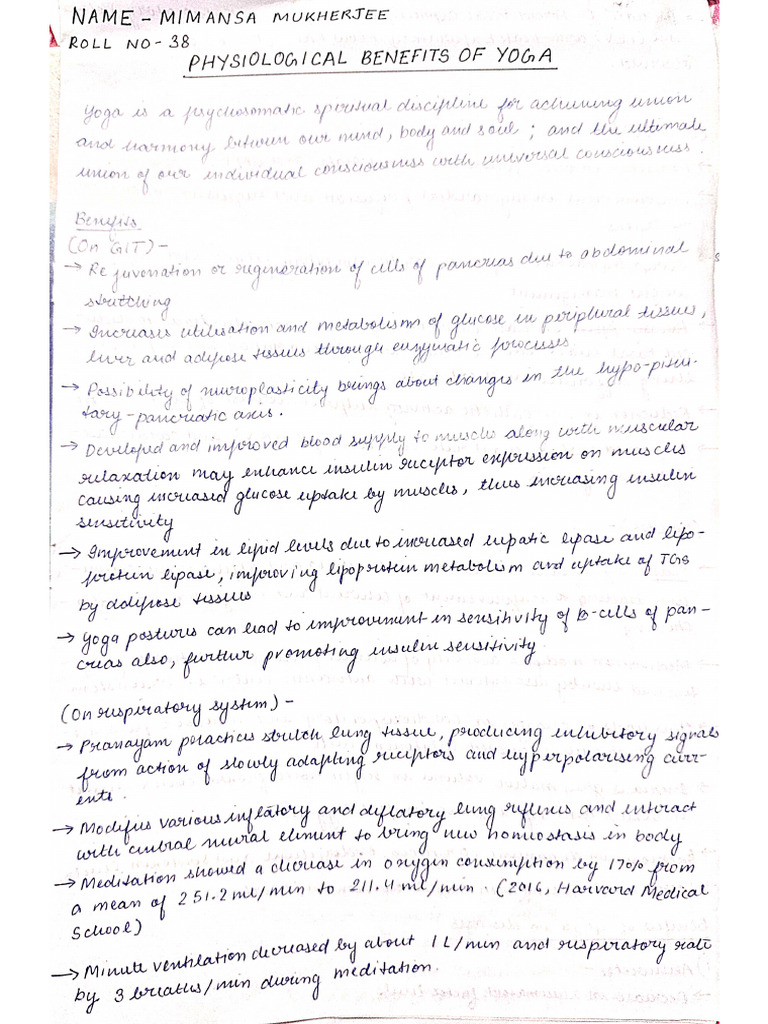 NAME - MIMANSA MUKHERJEE
ROLL NO - 38
PHYSIOLOGICAL BENEFITS OF YOGA
Yoga is a psychosomatic spiritual discipline for achieving union
and harmony between our mind, body and soul ; and the ultimate
union of our individual consciousness with universal consciousness.
Benefits
(On GIT) -
→ Rejuvenation or regeneration of cells of pancreas due to abdominal
stretching
→ Increases utilisation and metabolism of glucose in peripheral tissues,
liver and adipose tissues through enzymatic processes.
→ Possibility of neuroplasticity beings about changes in the hypo-pitui-
tary-pancreatic axis.
→ Developed and improved blood supply to muscles along with muscular
relaxation may enhance insulin receptor expression on muscles
causing increased glucose uptake by muscles, thus increasing insulin
sensitivity
→ Improvement in lipid levels due to increased hepatic lipase and lipo-
protein lipase, improving lipoprotein metabolism and uptake of TGs
by adipose tissues
→ Yoga postures can lead to improvement in sensitivity of B-cells of pan-
creas also, further promoting insulin sensitivity
(On respiratory system) -
→ Pranayam practices stretch lung tissue, producing inhibitory signals
from action of slowly adapting receptors and hyperpolarising curr-
ents.
→ Modifies various inflatory and deflatory lung reflexes and interact
with central neural element to bring new homeostasis in body
→ Meditation showed a decrease in oxygen consumption by 17% from
a mean of 251.2 ml/min to 211.4 ml/min. (2016, Harvard Medical
School)
→ Minute ventilation decreased by about 1 L/min and respiratory rate
by 3 breaths/min during meditation.